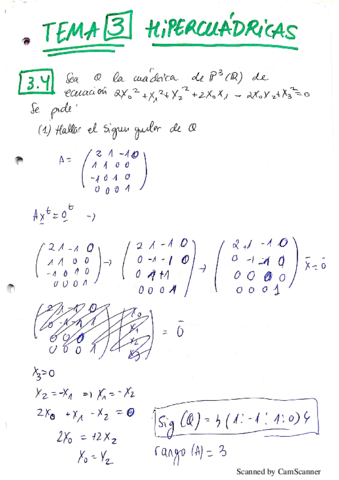 TEMA 3 HIPERCUÁDRICAS
3.4 Sea Q la cuádrica de P³(R) de
ecuación 2X₀² + X₁² + X₂² + 2X₀X₁ - 2X₀X₂ + X₃² = 0
Se pide:
(1) Hallar el sigun gular de Q
A = ( 2 1 -1 0
1 1 0 0
-1 0 1 0
0 0 0 1 )
Ax^t = 0^t →
( 2 1 -1 0 / 1 1 0 0 / -1 0 1 0 / 0 0 0 1 ) → ( 2 1 -1 0 / 0 -1 -1 0 / 0 1 +1 / 0 0 0 1 ) → ( 2 1 -1 0 / 0 -1 -1 0 / 0 0 0 0 / 0 0 0 1 ) x̄ = 0̄
= 0̄
X₃ = 0
X₂ = -X₁ ⇒ X₁ = -X₂
2X₀ + X₁ - X₂ = 0
2X₀ = +2X₂
X₀ = X₂
Sig(Q) = {(1:-1:1:0)}
rango(A) = 3
Scanned by CamScanner